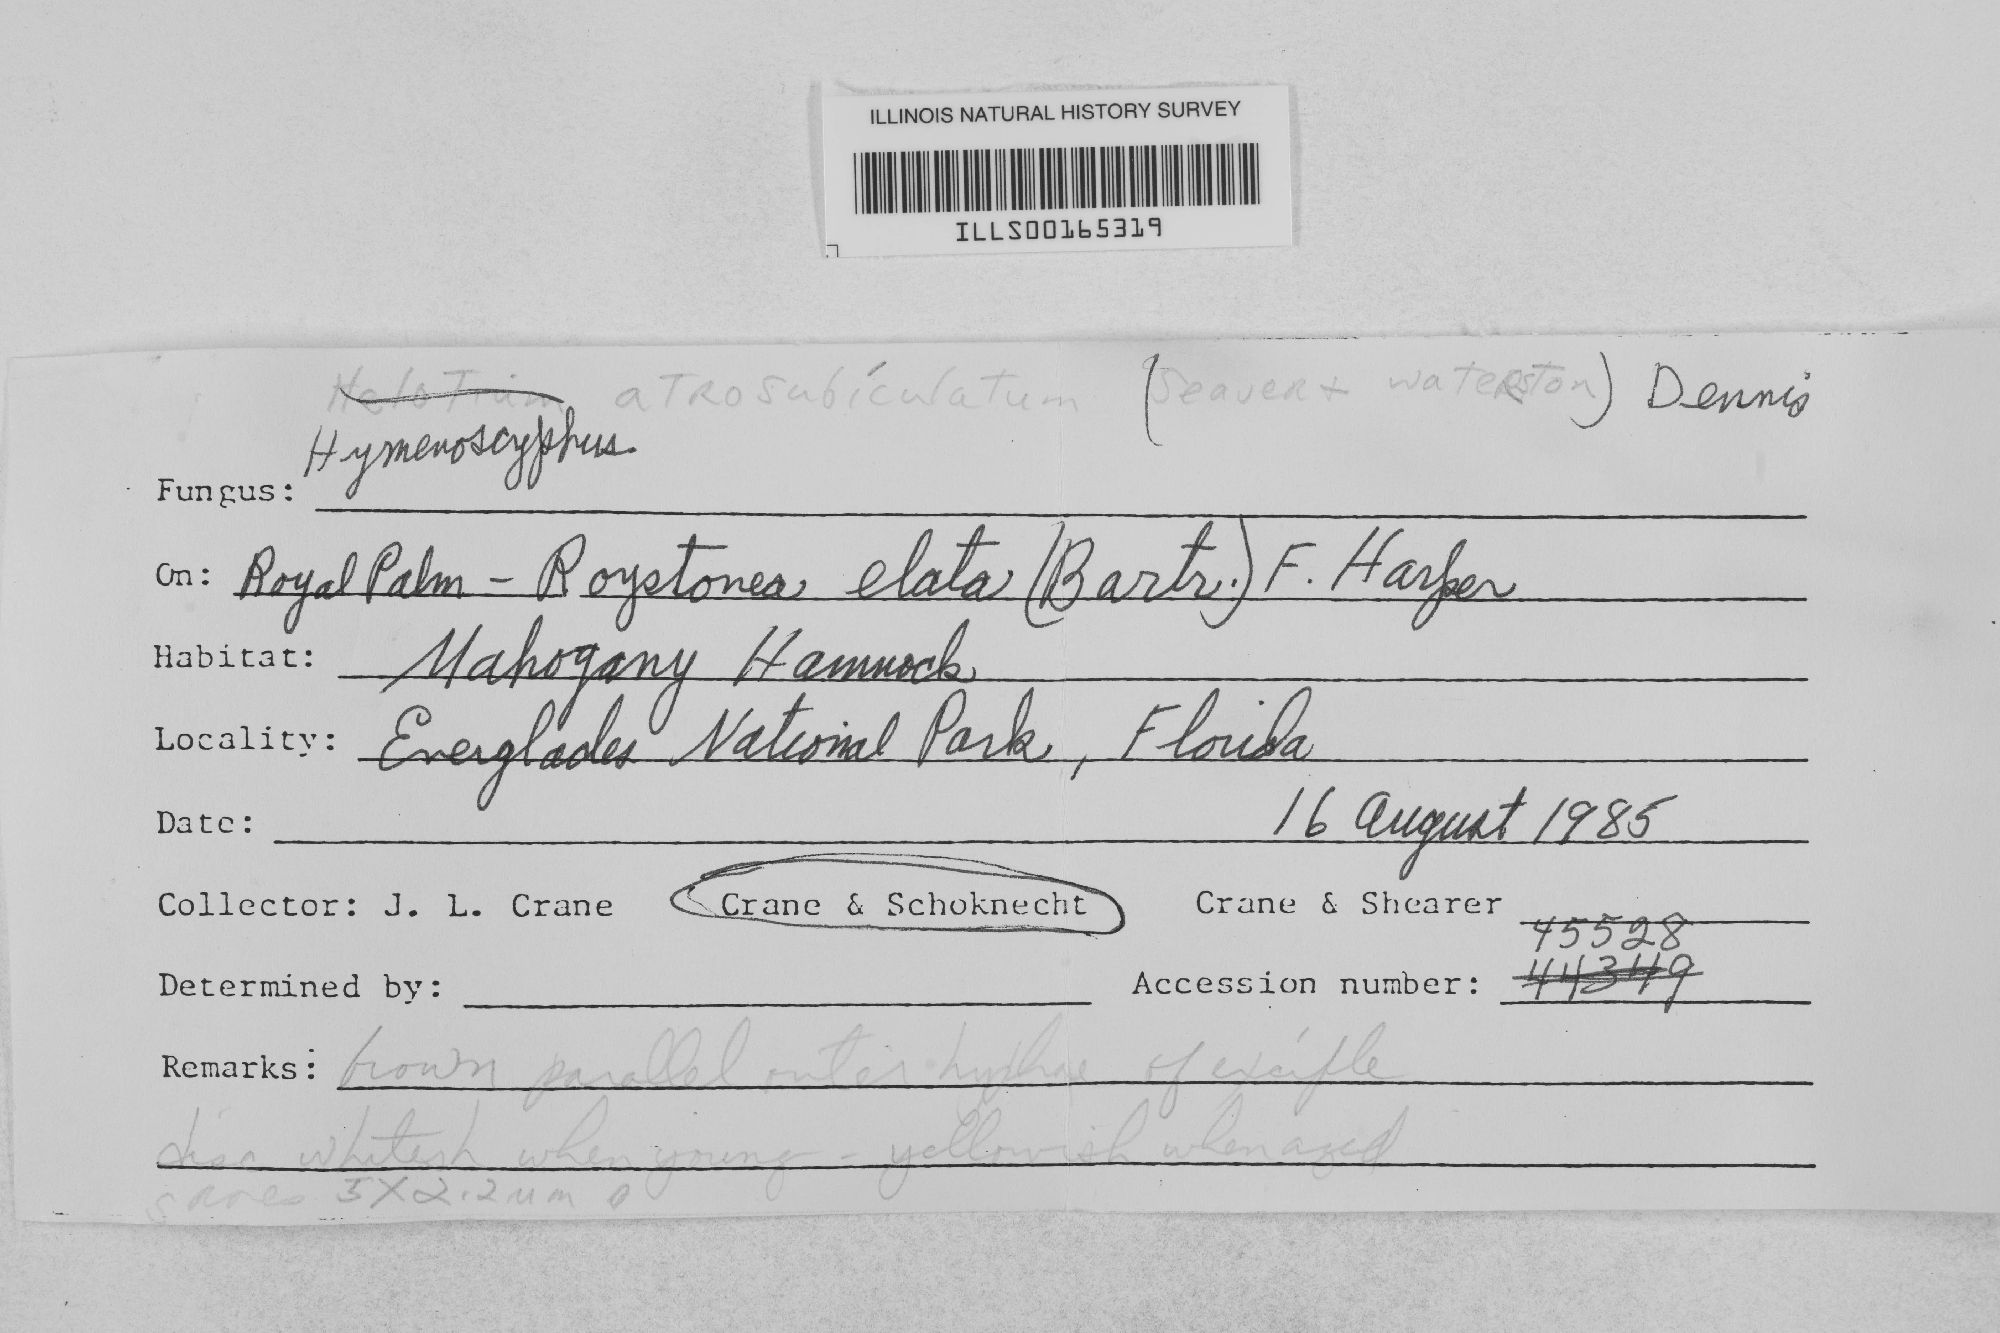 ILLINOIS NATURAL HISTORY SURVEY
ILLS00165319
Helotium atrosubiculatum (Seaver & Waterston) Dennis
Hymenoscyphus
Fungus:
On: Royal Palm - Roystonea elata (Bartr.) F. Harper
Habitat: Mahogany Hammock
Locality: Everglades National Park, Florida
Date: 16 August 1985
Collector: J. L. Crane Crane & Schoknecht Crane & Shearer
45528
Determined by: Accession number: 44349
Remarks: brown parallel outer hyphae of exciple
disc whitish when young - yellowish when aged
spores 5X2.2um